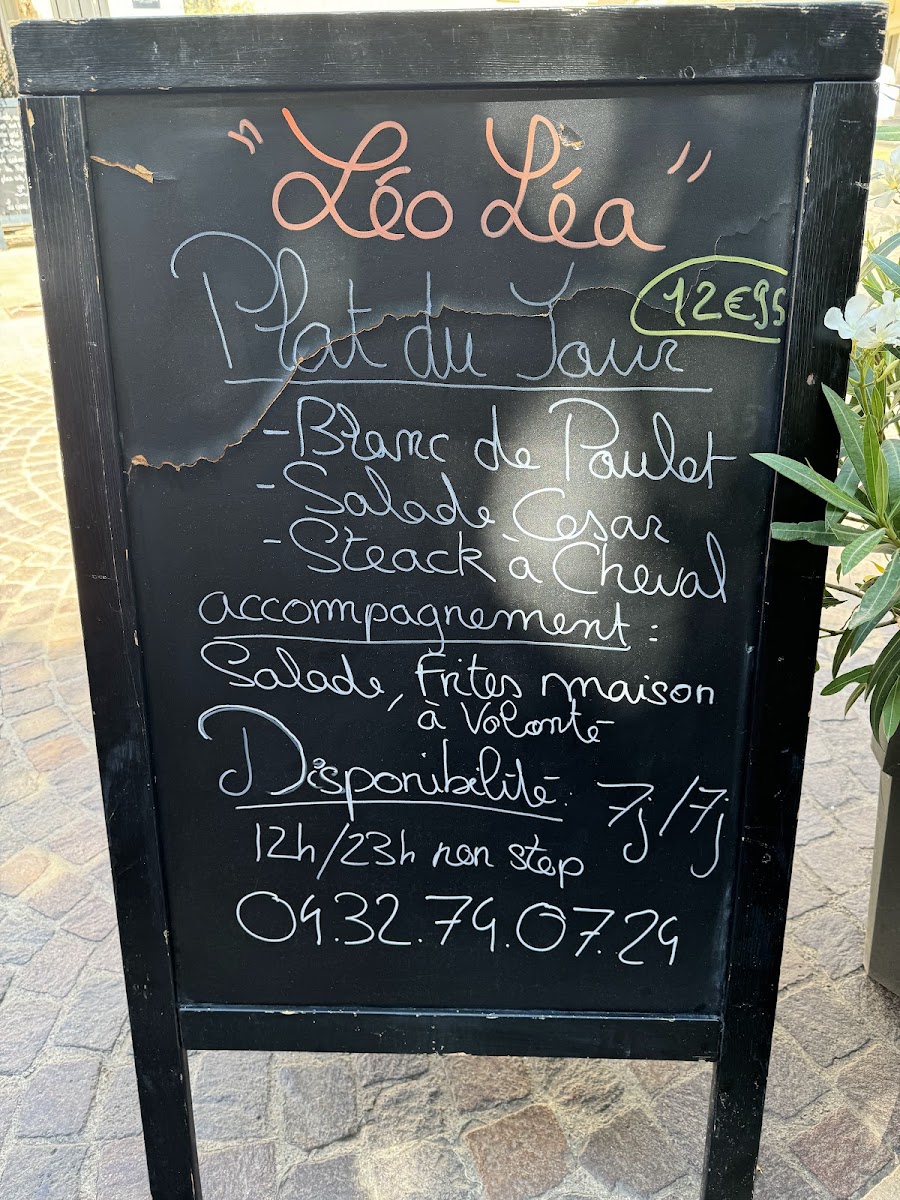 "Léo Léa"
Plat du Jour 12€95
- Blanc de Poulet
- Salade Cesar
- Steack à Cheval
accompagnement :
Salade, Frites maison
à Volonté
Disponibilité : 7j/7j
12h/23h non stop
04.32.74.07.24